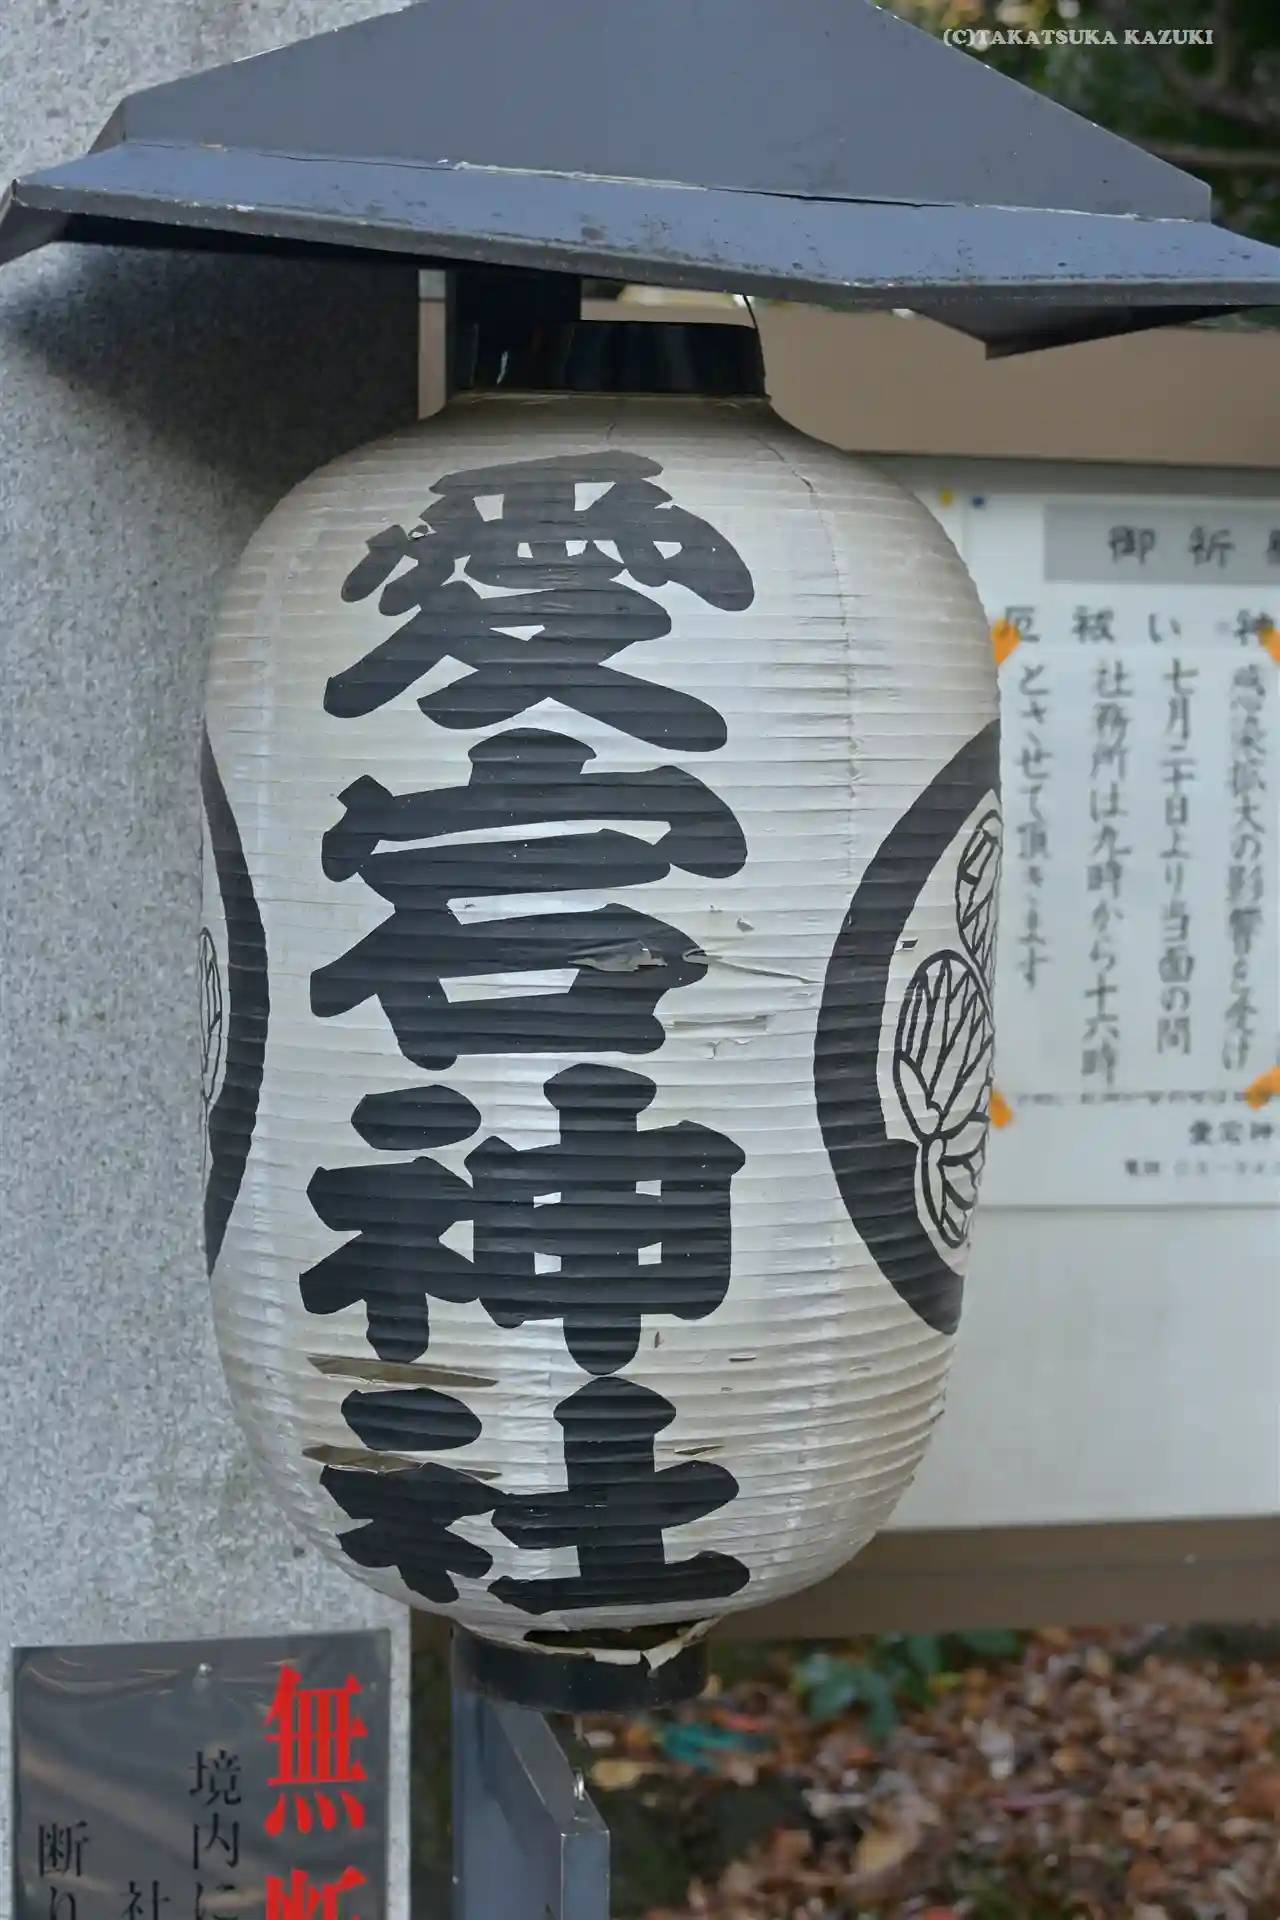 (C)TAKATSUKA KAZUKI
愛宕神社
御祈
厄祓い 神
感染拡大の影響を受け
七月二十日より当面の間
社務所は九時から十六時
とさせて頂きます
愛宕神
電話 03-343
無断
境内に
社
断り